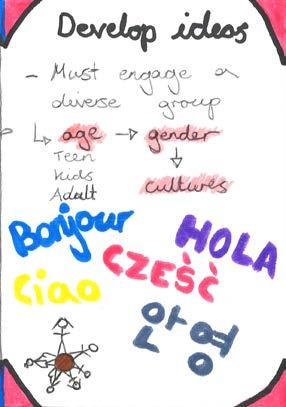 Develop ideas
- Must engage a
diverse group
↳ age → gender
↓
Teen
Kids
Adult
cultures
Bonjour
HOLA
CZEŚĆ
Ciao